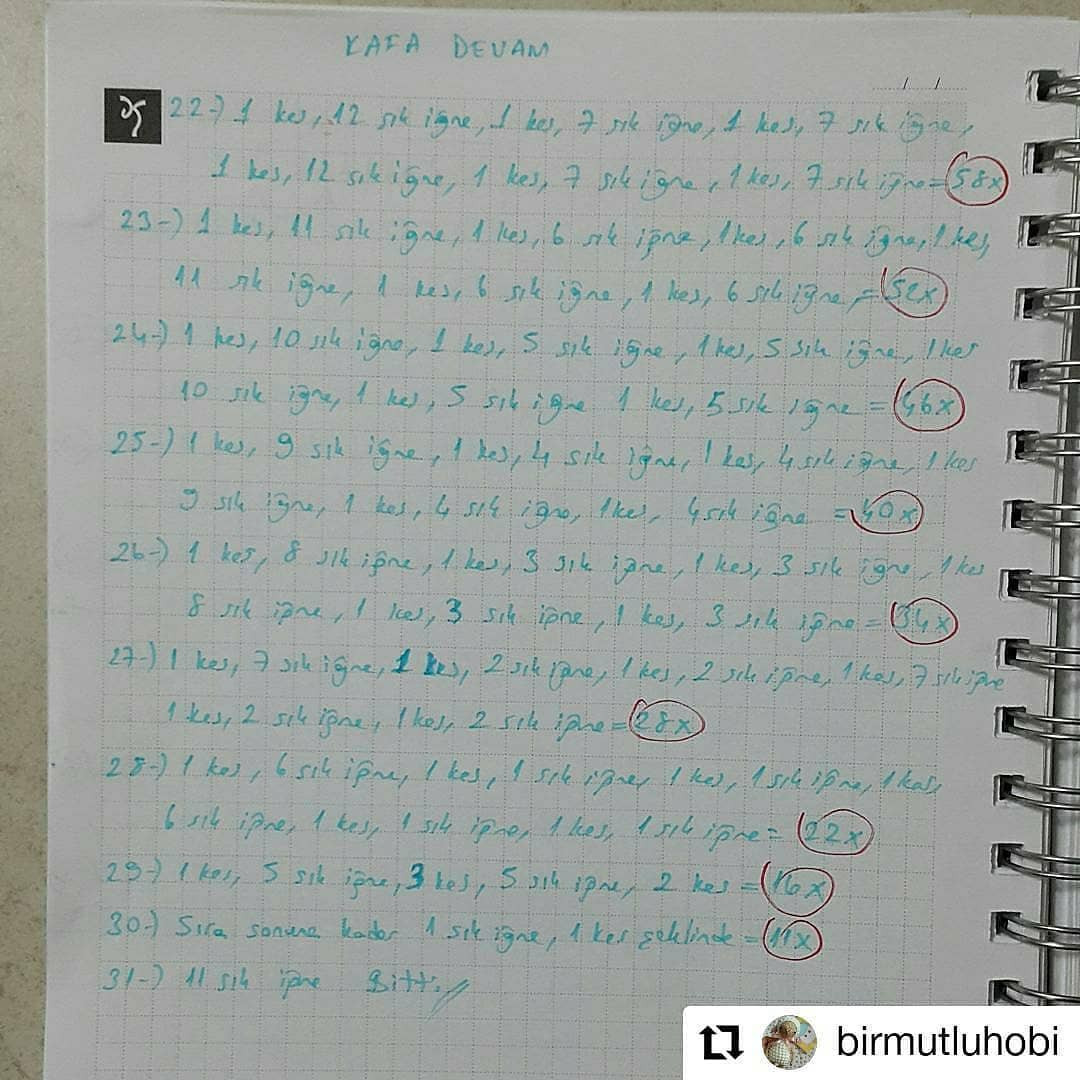 KAFA DEVAM
22-) 1 kes, 12 sık iğne, 1 kes, 7 sık iğne, 1 kes, 7 sık iğne,
1 kes, 12 sık iğne, 1 kes, 7 sık iğne, 1 kes, 7 sık iğne = 58x
23-) 1 kes, 11 sık iğne, 1 kes, 6 sık iğne, 1 kes, 6 sık iğne, 1 kes,
11 sık iğne, 1 kes, 6 sık iğne, 1 kes, 6 sık iğne, = 52x
24-) 1 kes, 10 sık iğne, 1 kes, 5 sık iğne, 1 kes, 5 sık iğne, 1 kes
10 sık iğne, 1 kes, 5 sık iğne 1 kes, 5 sık iğne = 46x
25-) 1 kes, 9 sık iğne, 1 kes, 4 sık iğne, 1 kes, 4 sık iğne, 1 kes
9 sık iğne, 1 kes, 4 sık iğne, 1 kes, 4 sık iğne = 40x
26-) 1 kes, 8 sık iğne, 1 kes, 3 sık iğne, 1 kes, 3 sık iğne, 1 kes
8 sık iğne, 1 kes, 3 sık iğne, 1 kes, 3 sık iğne = 34x
27-) 1 kes, 7 sık iğne, 1 kes, 2 sık iğne, 1 kes, 2 sık iğne, 1 kes, 7 sık iğne
1 kes, 2 sık iğne, 1 kes, 2 sık iğne = 28x
28-) 1 kes, 6 sık iğne, 1 kes, 1 sık iğne, 1 kes, 1 sık iğne, 1 kes,
6 sık iğne, 1 kes, 1 sık iğne, 1 kes, 1 sık iğne = 22x
29-) 1 kes, 5 sık iğne, 3 kes, 5 sık iğne, 2 kes = 16x
30-) Sıra sonuna kadar 1 sık iğne, 1 kes şeklinde = 11x
31-) 11 sık iğne Bitti.
birmutluhobi